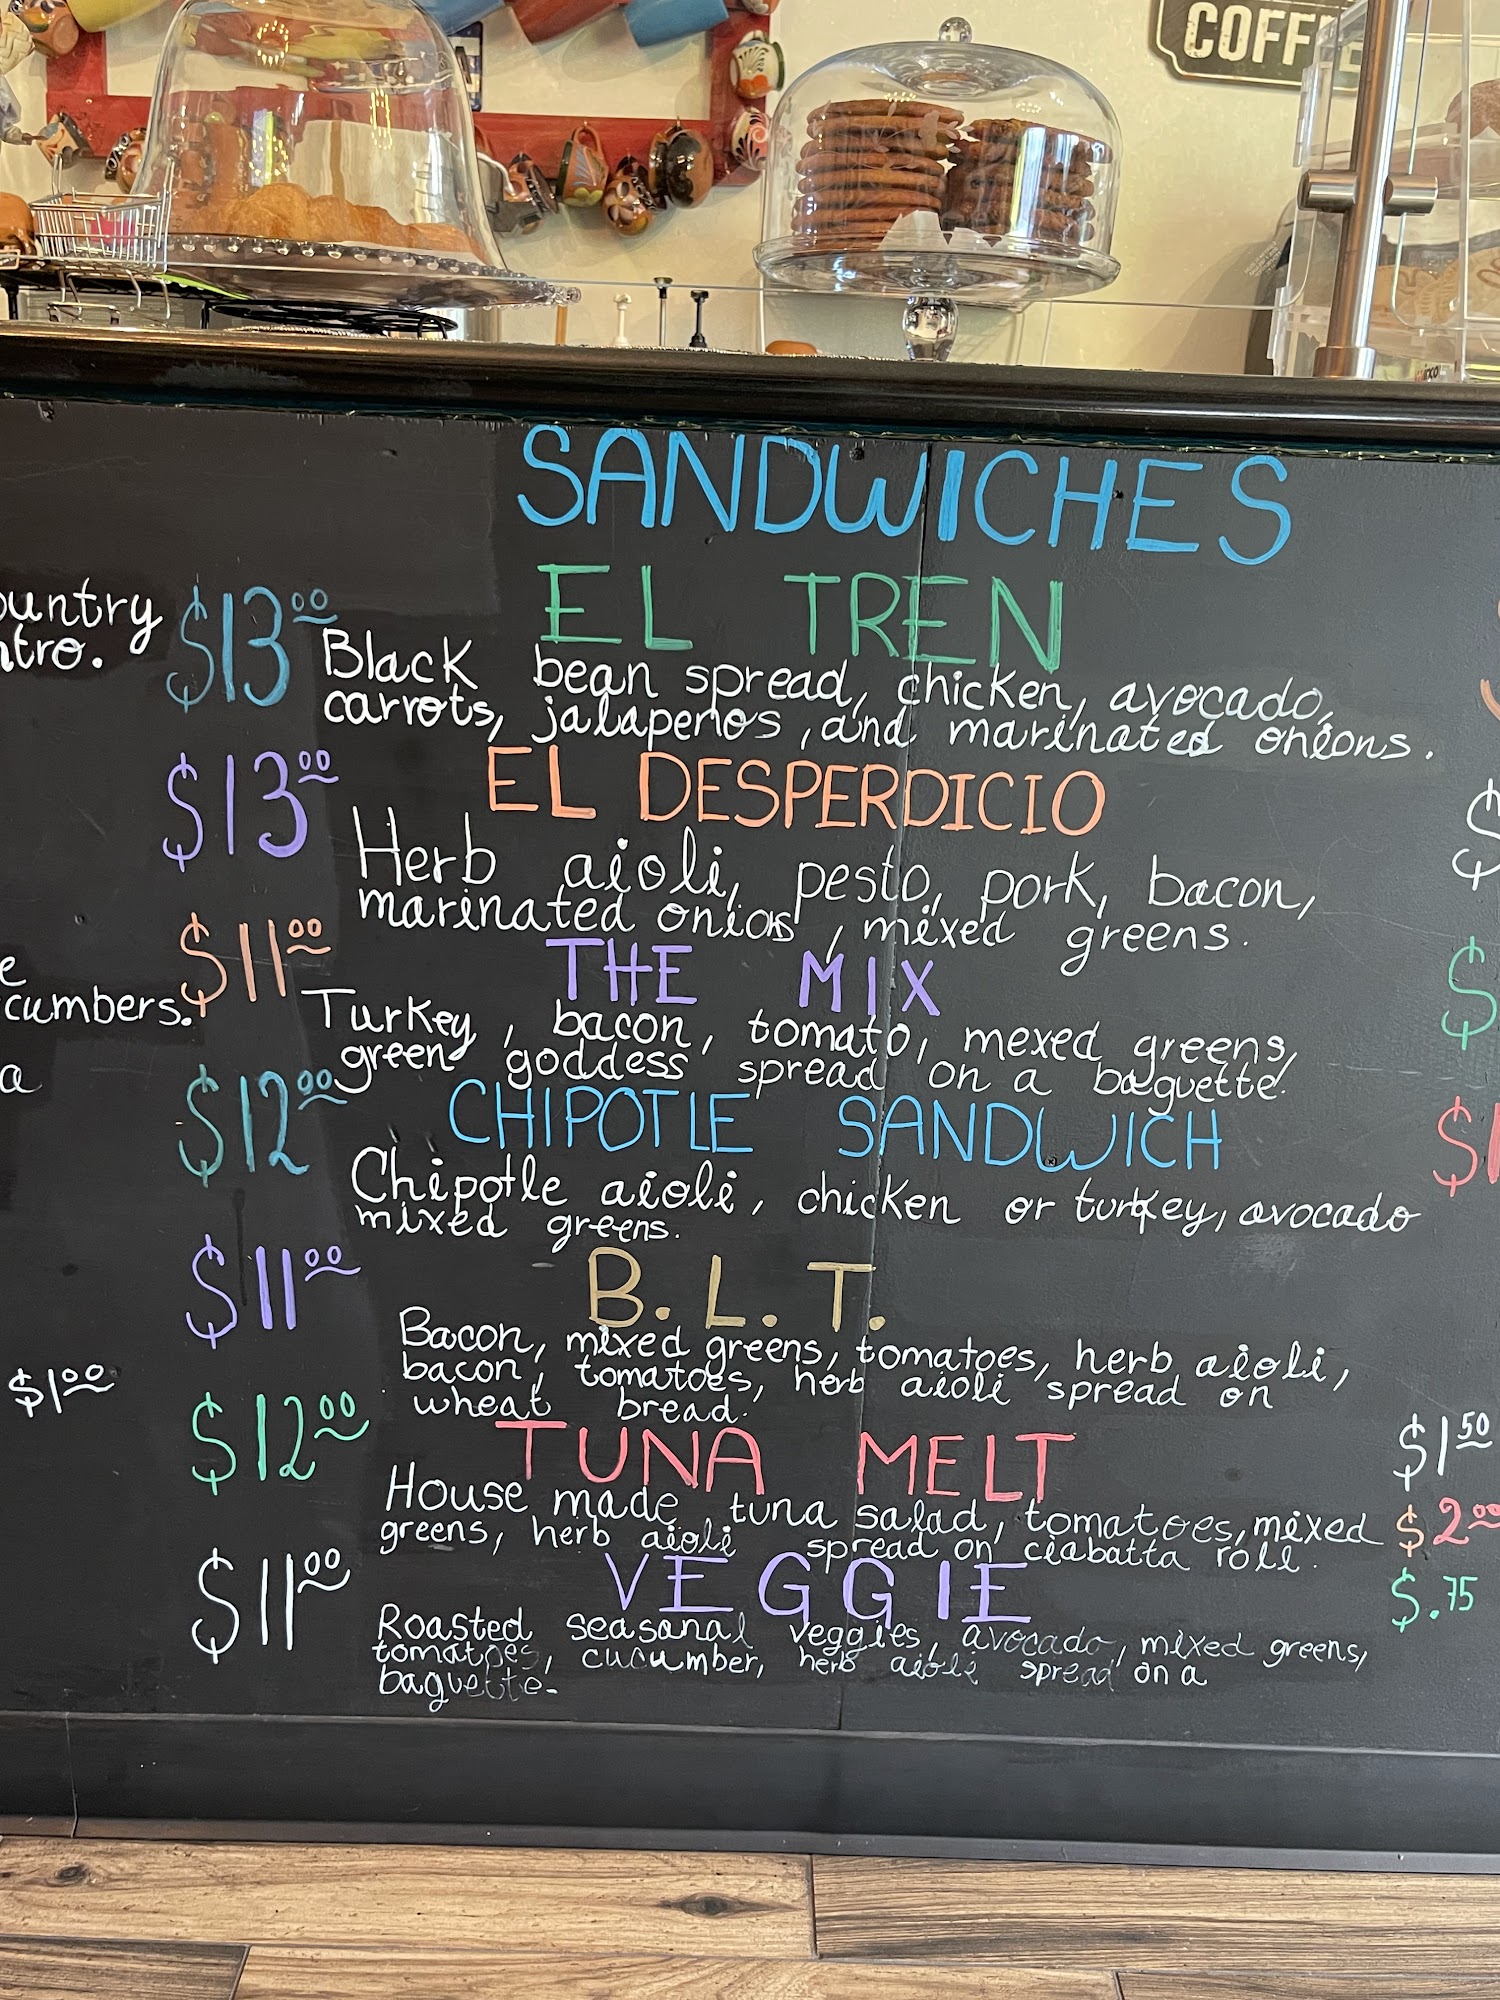 COFF
SANDWICHES
EL TREN
ountry
ntro.
$13.00
Black bean spread, chicken, avocado,
carrots, jalapenos, and marinated onions.
$13.00
EL DESPERDICIO
Herb aioli, pesto, pork, bacon,
marinated onions, mixed greens.
$11.00
THE MIX
cumbers.
Turkey, bacon, tomato, mexed greens,
green goddess spread on a baguette.
a
$12.00
CHIPOTLE SANDWICH
Chipotle aioli, chicken or turkey, avocado
mixed greens.
$11.00
B.L.T.
Bacon, mixed greens, tomatoes, herb aioli,
bacon, tomatoes, herb aioli spread on
wheat bread.
$1.00
$12.00
TUNA MELT
$1.50
House made tuna salad, tomatoes, mixed
greens, herb aioli spread on ciabatta roll.
$2.00
$11.00
VEGGIE
$.75
Roasted seasonal veggies, avocado, mixed greens,
tomatoes, cucumber, herb aioli spread on a
baguette.